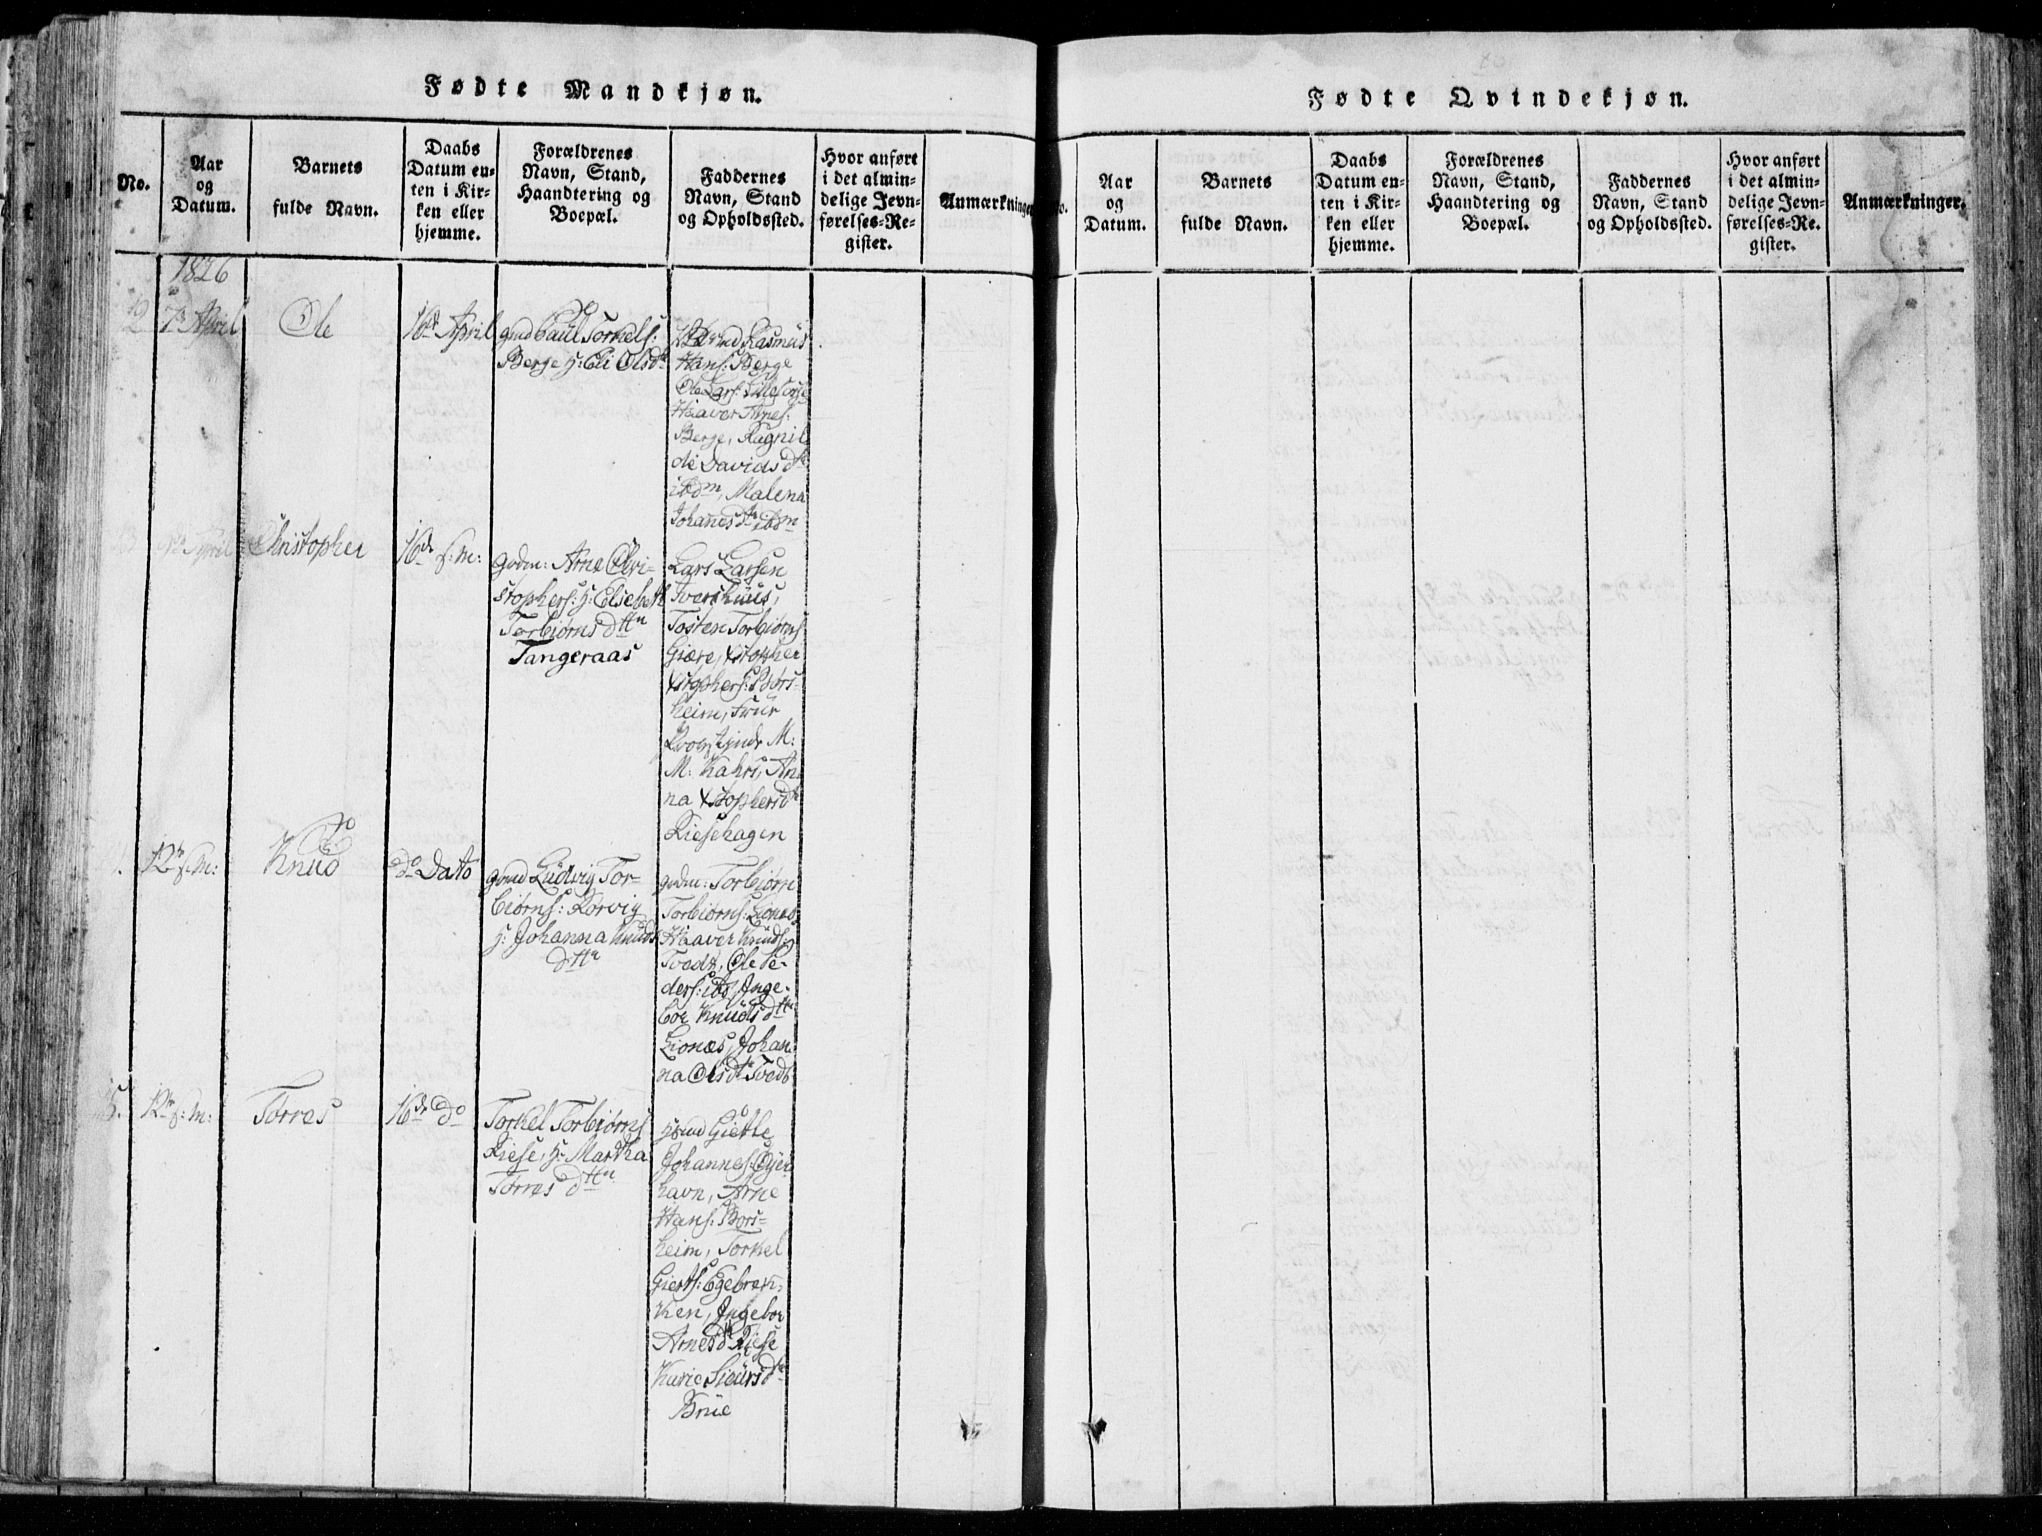 Fødte Mandkjøn.
No.
Aar
og
Datum.
Barnets
fulde Navn.
Daabs
Datum en-
ten i Kir-
ken eller
hjemme.
Forældrenes
Navn, Stand,
Haandtering og
Boepæl.
Faddernes
Navn, Stand
og Opholdssted.
Hvor anført
i det almin-
delige Jevn-
førelses-Re-
gister.
Anmærkninger
1826
12
7de April
Ole
16de April
gmd Paul Torkels:
Berge H: Eli Olsdtr
Rasmus
Hans: Berge
Ole Lars:
Haaver Arnes:
Berge, Ragnil
de Davidsdtr
ibdm, Malena
Johannesdtr ibdm
April
Christopher
16de s: m:
gvdm: Arne Chri-
stophers: H: Elsebeth
Torbiørnsdttr
Tangeraas
Lars Larsen
Ivershuus,
Tosten Torbiørns
Giære, Xstopher
Xstophers: Børs-
heim, Frue
Provstinde M:
M: Kahrs, An
na Xstophersdtr
Riesehagen
12te s: m:
Knud
do Dato
gmd Ludvig Tor-
biørns: Rørvig
H: Johanna Knuds
dttr
gvdm: Torbiørn
Torbiørns: Lionæs
Haaver Knuds:
Tvedt, Ole Pe-
ders: ibd, Inge-
bor Knudsdttr
Lionæs, Johan-
na Olsdtr Tvedt
5.
12te s: m:
Torres
16de do
Torkel Torbiørns
Riese, H: Martha
Torresdttr
Giethe
Johannes: Øyer-
havn, Arne
Hans: Børs-
heim, Torkel
Gierts: Egebrek-
ken, Ingebor
Arnesdtr Riese
Kari Siursdtr
Brue
Fødte Qvindekjøn.
o.
Aar
og
Datum.
Barnets
fulde Navn.
Daabs
Datum en-
ten i Kir-
ken eller
hjemme.
Forældrenes
Navn, Stand,
Haandtering og
Boepæl.
Faddernes
Navn, Stand
og Opholdssted.
Hvor anført
i det almin-
delige Jevn-
førelses-Re-
gister.
Anmærkninger.